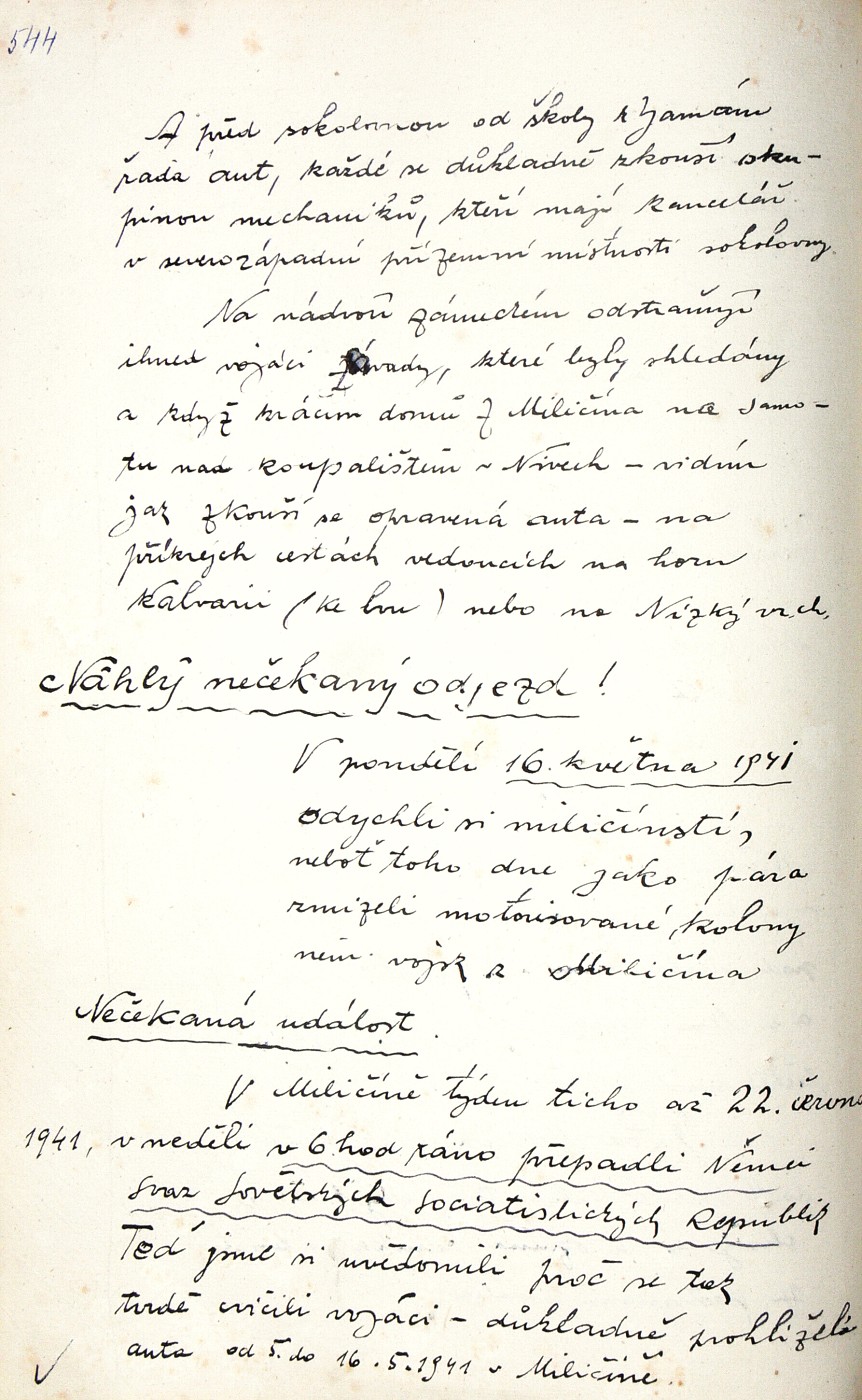 544
A před sokolovnou od školy k Jamám
řada aut, každé se důkladně zkouší sku-
pinou mechaniků, kteří mají kancelář
v severozápadní přízemní místnosti sokolovny.
Na nádvoří zámeckém odstraňují
ihned vojáci závady, které byly shledány
a když kráčím domů z Miličína na samo-
tu nad koupalištěm v Nivech – vidím
jak zkouší se opravená auta – na
příkrejch cestách vedoucích na horu
Kalvarii (ke lvu) nebo na Nízký vrch.
Náhlý nečekaný odjezd!
V pondělí 16. května 1941
odychli si miličínstí,
neboť toho dne jako pára
zmizeli motorisované kolony
něm. vojsk z Miličína
Nečekaná událost.
V Miličíně týden ticho až 22. června
1941, v neděli v 6 hod ráno přepadli Němci
svaz sovětských socialistických republik
Teď jsme si uvědomili proč se tak
tvrdě cvičili vojáci – důkladně prohlíželi
auta od 5. do 16.5.1941 v Miličíně.